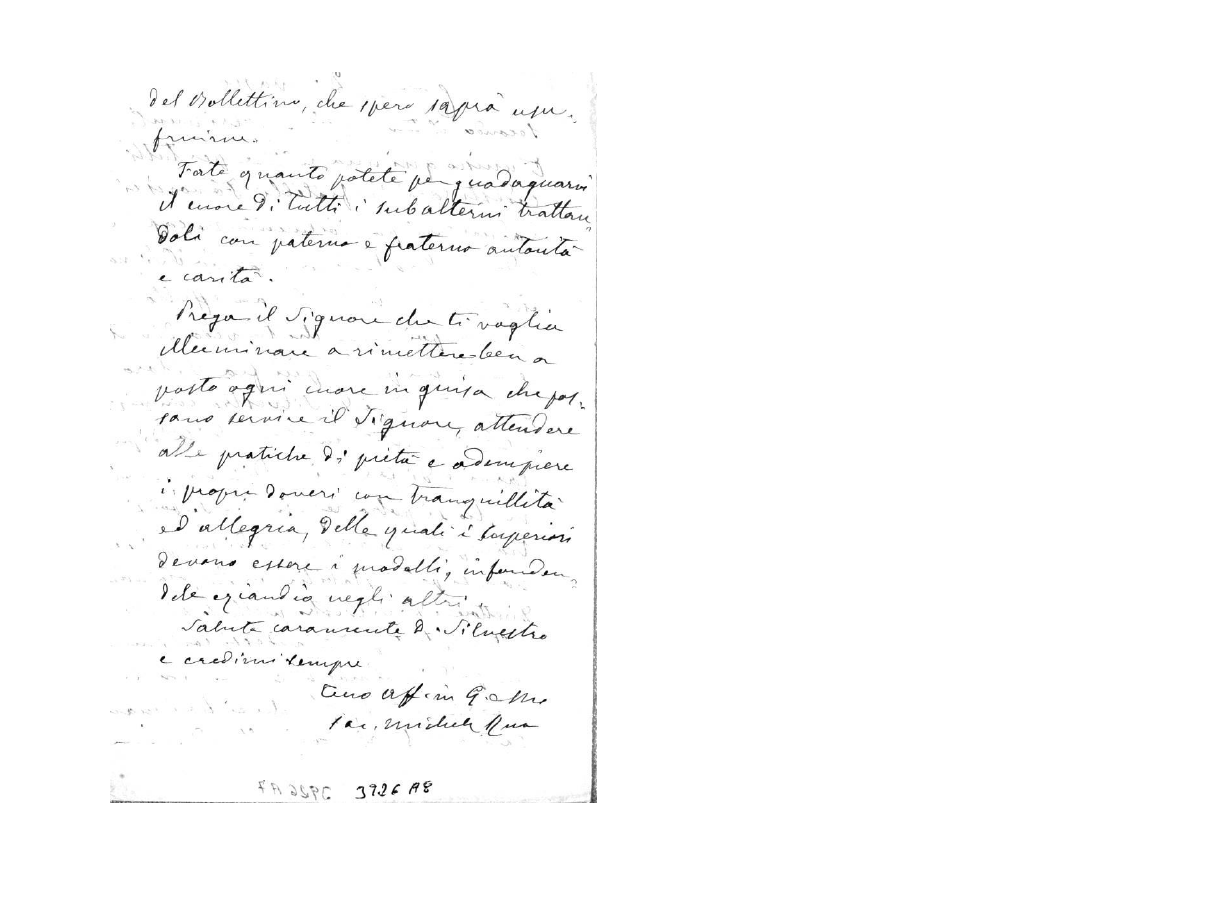 del Bollettino, che spero saprà usu-
fruirne.
Fate quanto potete per guadagnarvi
il cuore di tutti i subalterni trattan-
doli con paterna e fraterna autorità
e carità.
Prega il Signore che ti voglia
illuminare a rimettere ben a
posto ogni cuore in guisa che pos-
sano servire il Signore, attendere
alle pratiche di pietà e adempiere
i propri doveri con tranquillità
ed allegria, delle quali i Superiori
devono essere i modelli, infonden-
dole eziandio negli altri.
Saluta caramente D. Silvestro
e credimi sempre
Tuo aff. in G. e M.
Sac. Michele Rua
3926 A8